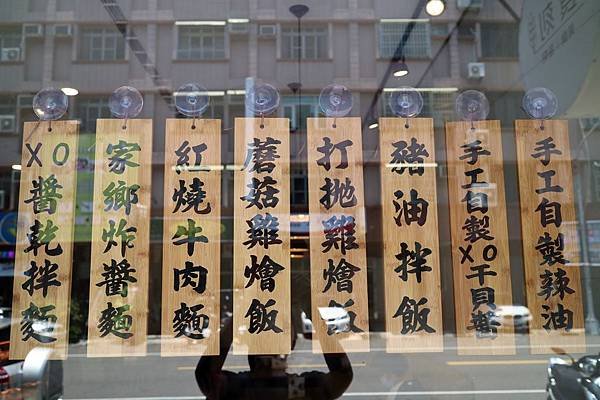 XO醬乾拌麵
家鄉炸醬麵
紅燒牛肉麵
蘑菇雞燴飯
打拋雞燴飯
豬油拌飯
手工自製XO干貝醬
手工自製辣油